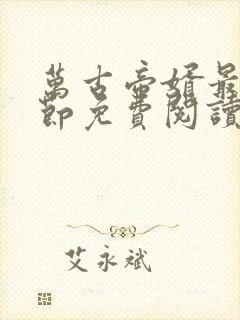 萬古帝婿最
節免費閱讀
艾永斌